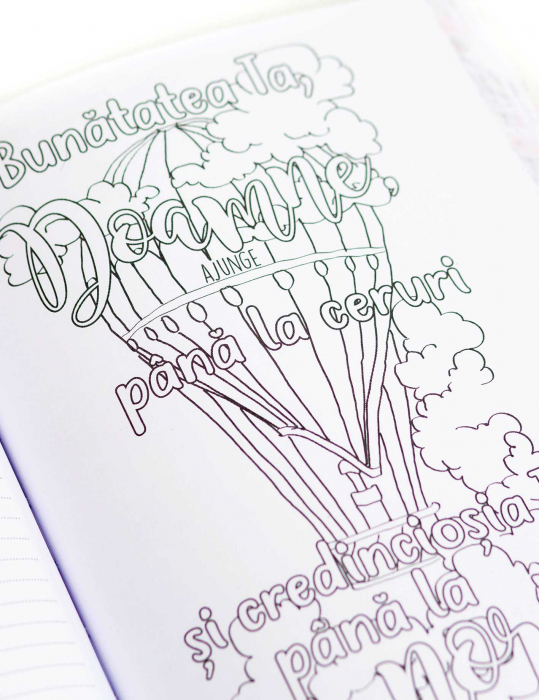 Bunătatea Ta,
Doamne
AJUNGE
până la ceruri
și credincioșia
până la